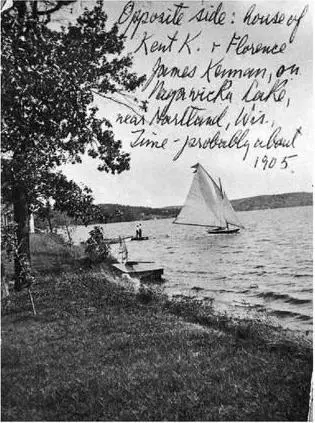 Opposite side: house of
Kent K. + Florence
James Kennan, on
Nagawicka Lake,
near Hartland, Wis.,
Time - probably about
1905.